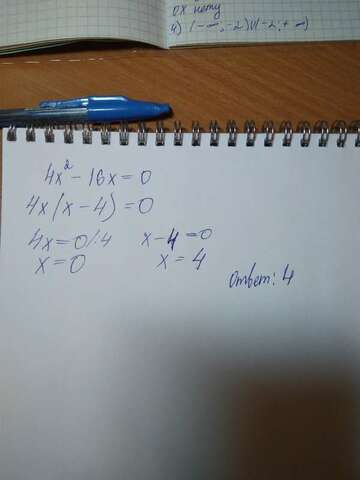 ОХ нету
4) (-∞; -2)∪(-2; +∞)
4x² - 16x = 0
4x(x - 4) = 0
4x = 0 /:4 x - 4 = 0
x = 0 x = 4
Ответ: 4